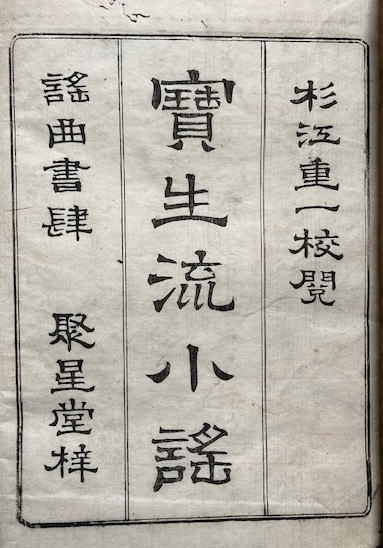 杉江重一校閲
寶生流小謠
謠曲書肆 聚星堂梓